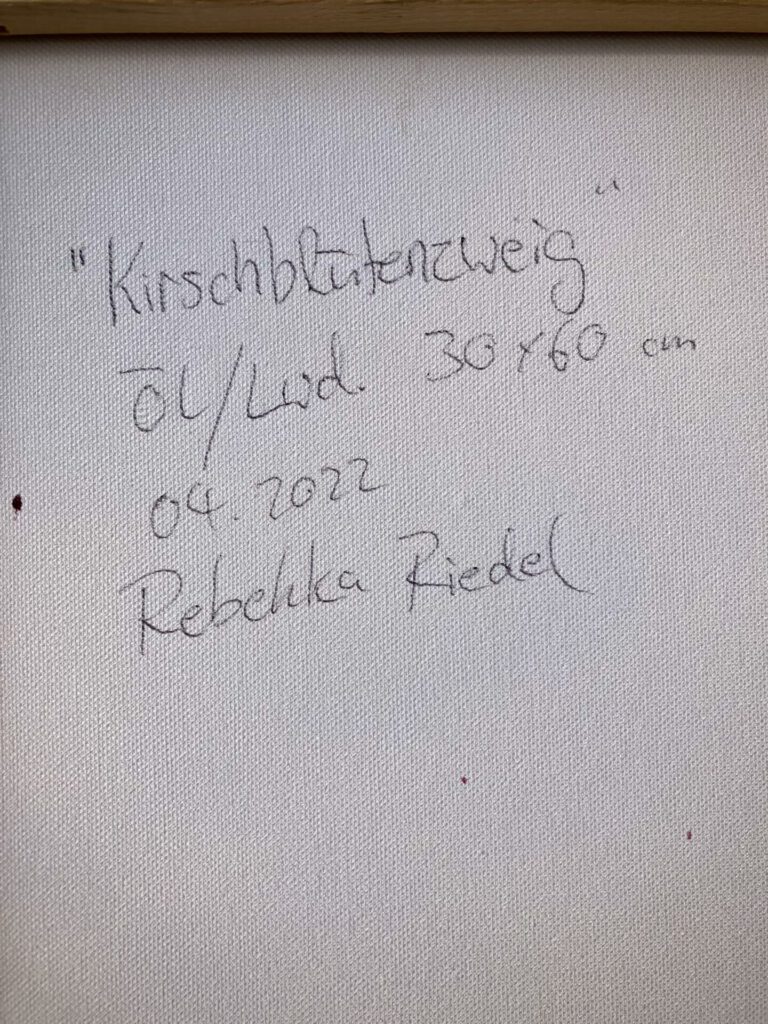 "Kirschblütenzweig"
Öl/Lwd. 30x60 cm
04.2022
Rebekka Riedel